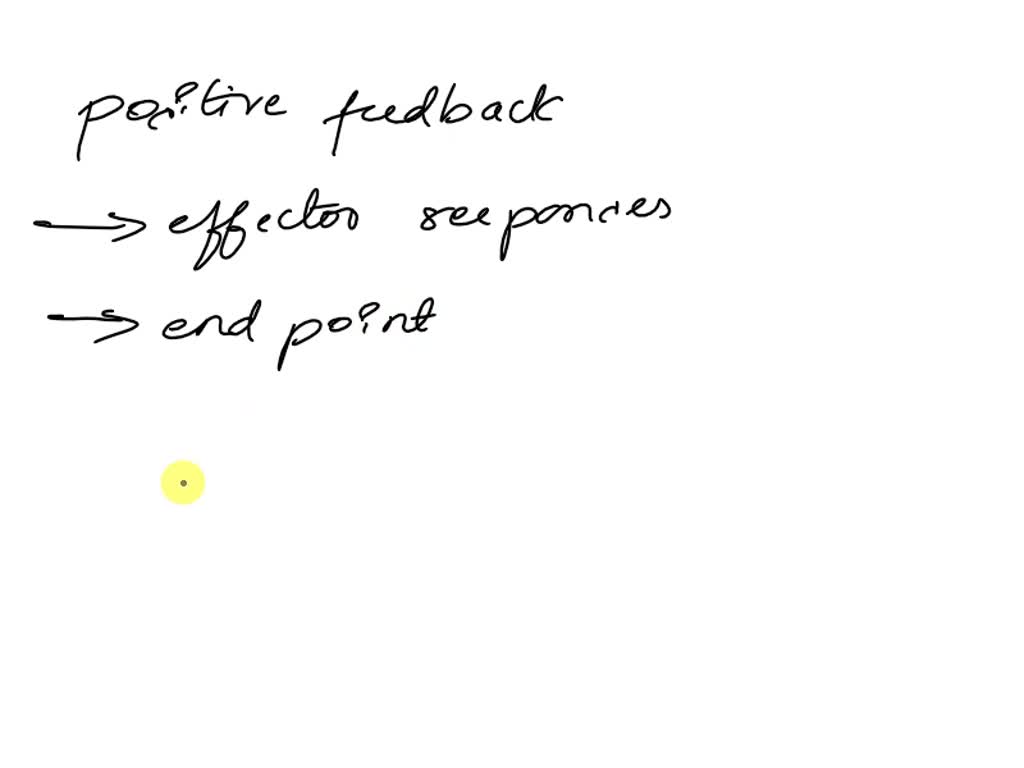 positive feedback
→ effector responses
→ end point